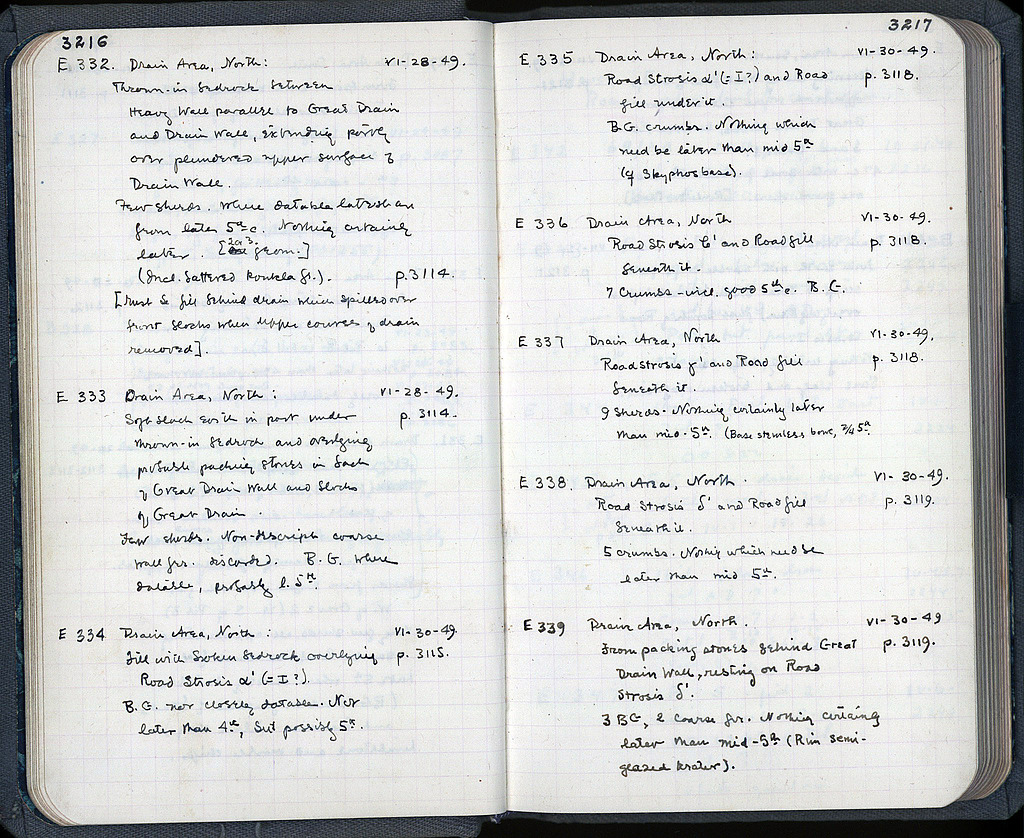 3216
E 332. Drain Area, North: VI-28-49.
Thrown-in bedrock between
Heavy Wall parallel to Great Drain
and Drain Wall, extending partly
over plundered upper surface of
Drain Wall.
Few sherds. Where datable later than
from later 5th c. Nothing certainly
later. [2 or 3 geom.]
(Incl. battered koukla fr.). p. 3114.
[Must be fill behind drain which spilled over
front blocks when upper courses of drain
removed].
E 333 Drain Area, North: VI-28-49.
Soft black earth in part under p. 3114.
thrown-in bedrock and overlying
probable packing stones in back
of Great Drain Wall and blocks
of Great Drain.
Few sherds. Non-descript coarse
wall frs. discarded. B.G. where
datable, probably l. 5th.
E 334 Drain Area, North: VI-30-49.
Fill with broken bedrock overlying p. 3115.
Road Strosis α' (= I?).
B.G. not closely datable. Not
later than 4th, but possibly 5th.
3217
E 335 Drain Area, North: VI-30-49.
Road Strosis α' (= I?) and Road p. 3118.
fill under it.
B.G. crumbs. Nothing which
need be later than mid 5th
(cf skyphos base).
E 336 Drain Area, North VI-30-49.
Road Strosis β' and Road fill p. 3118.
beneath it.
7 crumbs - incl. good 5th c. B.G.
E 337 Drain Area, North VI-30-49.
Road strosis γ' and Road fill p. 3118.
beneath it.
9 sherds. Nothing certainly later
than mid-5th. (Base stemless bowl, 2/4 5th
E 338. Drain Area, North. VI-30-49.
Road Strosis δ' and Road fill p. 3119.
beneath it.
5 crumbs. Nothing which need be
later than mid 5th.
E 339 Drain Area, North. VI-30-49
From packing stones behind Great p. 3119.
Drain Wall, resting on Road
Strosis δ'.
3 BG, 2 coarse frs. Nothing certainly
later than mid-5th (Rim semi-
glazed krater).